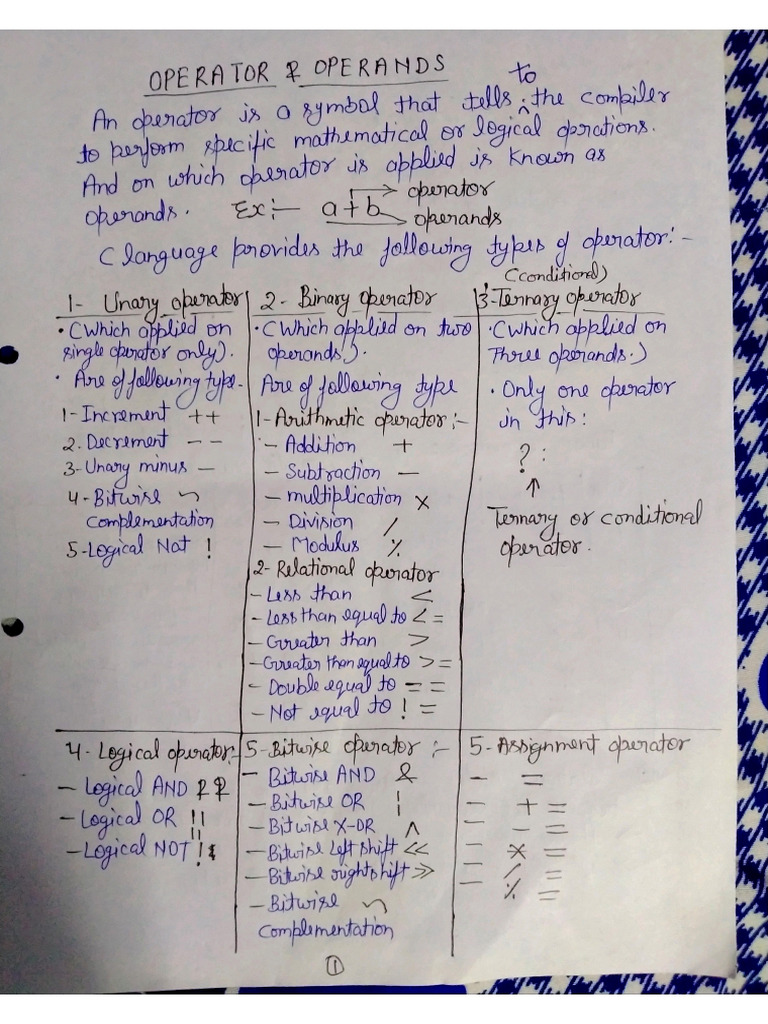 OPERATOR & OPERANDS
An operator is a symbol that tells to the compiler
to perform specific mathematical or logical oprations.
And on which operator is applied is known as
operands. Ex:- a+b operator
operands
C language provides the following types of operator:-
1- Unary operator
• (Which applied on
single operator only).
• Are of following type-
1- Increment ++
2. Decrement --
3- Unary minus -
4- Bitwise ~
Complementation
5- Logical Not !
2- Binary operator
• (Which applied on two
operands.).
Are of following type
1- Arithmetic operator:-
- Addition +
- Subtraction -
- multiplication ×
- Division /
- Modulus %
2- Relational operator
- Less than <
- Less than equal to <=
- Greater than >
- Greater than equal to >=
- Double equal to ==
- Not equal to !=
(conditional)
3- Ternary operator
• (Which applied on
Three operands.)
• Only one operator
in this:
? :
↑
Ternary or conditional
operator.
4- Logical operator:-
- Logical AND &&
- Logical OR ||
- Logical NOT !
5- Bitwise operator :-
- Bitwise AND &
- Bitwise OR |
- Bitwise X-OR ^
- Bitwise left shift <<
- Bitwise right shift >>
- Bitwise ~
Complementation
5- Assignment operator
- =
- + =
- - =
- × =
- / =
- % =
1